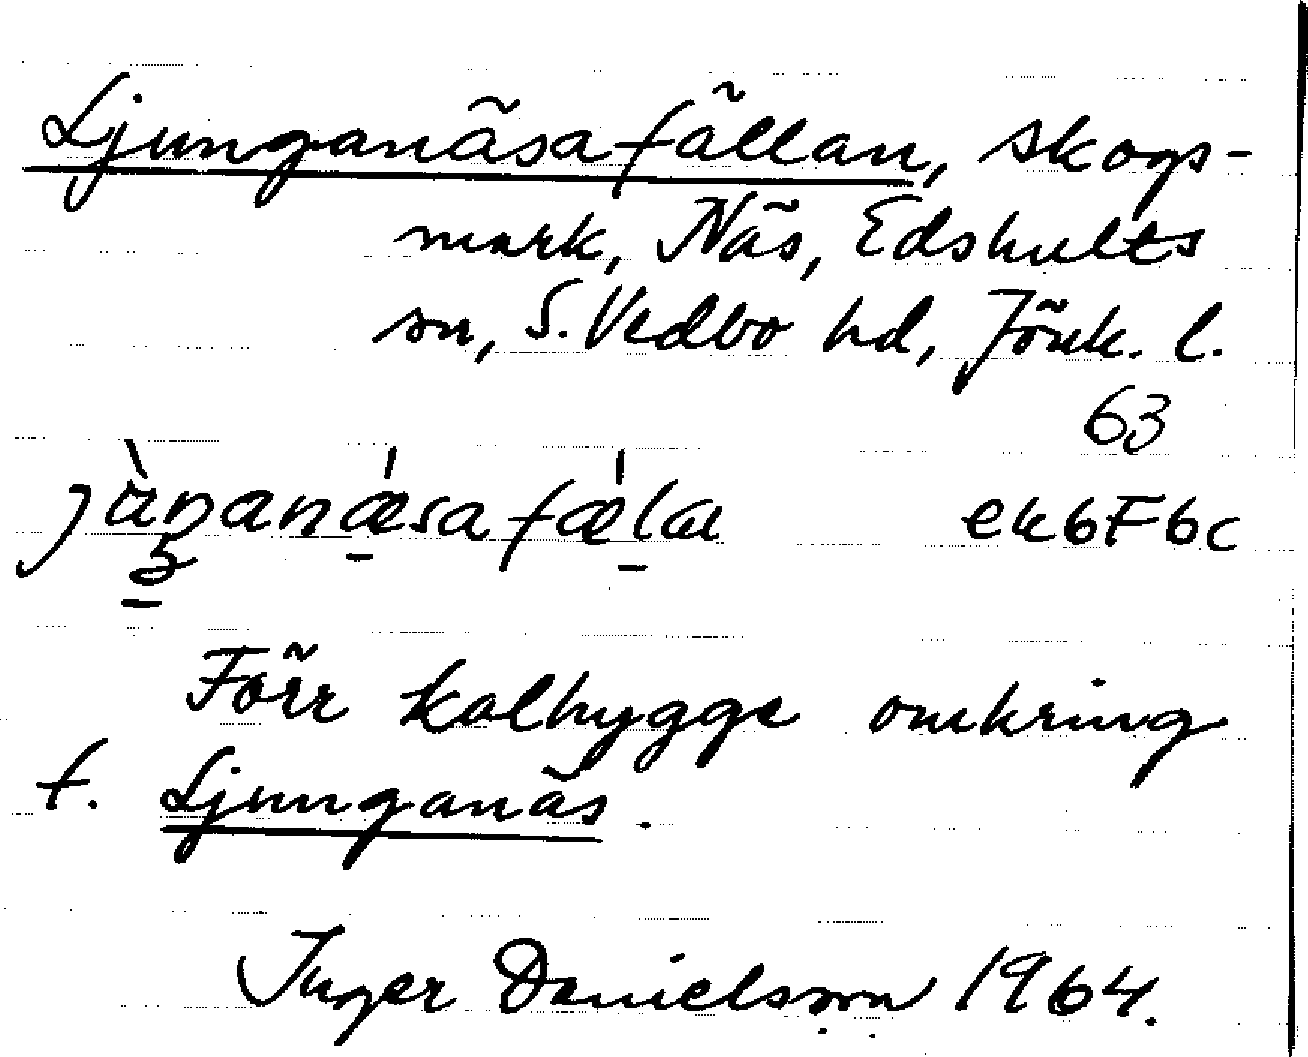 Ljunganäsafällan, skogs-
mark, Näs, Edshults
sn, S. Vedbo hd, Jönk. l.
63
ek 6 F 6 c
Förr kalhygge omkring
f. Ljunganäs.
Inger Danielsson 1964.